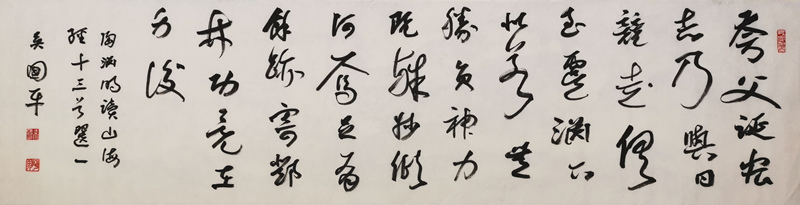 夸父誕宏
志乃與日
競走俱
至虞淵下
似若無
勝負神力
既殊妙傾
河焉足有
餘跡寄鄧
林功竟在
身後
陶淵明讀山海
經十三首選一
吴國平